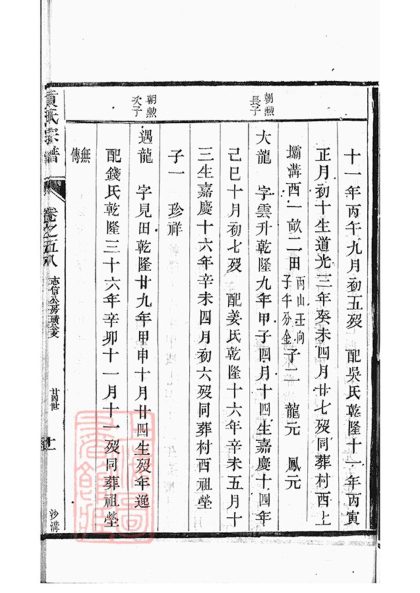 十一年丙午九月初五歿　配吳氏乾隆十一年丙寅
正月初十生道光三年癸未四月廿七歿同葬村西上
壩溝西一畝二田丙山壬向子午分金子二　龍元　鳳元
朝勲長子
大龍　字雲升乾隆九年甲子四月十四生嘉慶十四年
己巳十月初七歿　配姜氏乾隆十六年辛未五月十
三生嘉慶十六年辛未四月初六歿同葬村西祖塋
子一　珍祥
朝勲次子
遇龍　字見田乾隆廿九年甲申十月廿四生歿年逸
配錢氏乾隆三十六年辛卯十一月十二歿同葬祖塋
無傳
黃氏宗譜
卷之五八
廿四世
沙溝